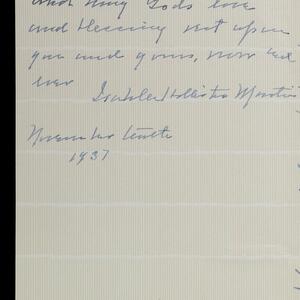 and may God's love
and blessing rest upon
you and yours, now and
ever
Isabel Hollister Martin
November tenth
1937